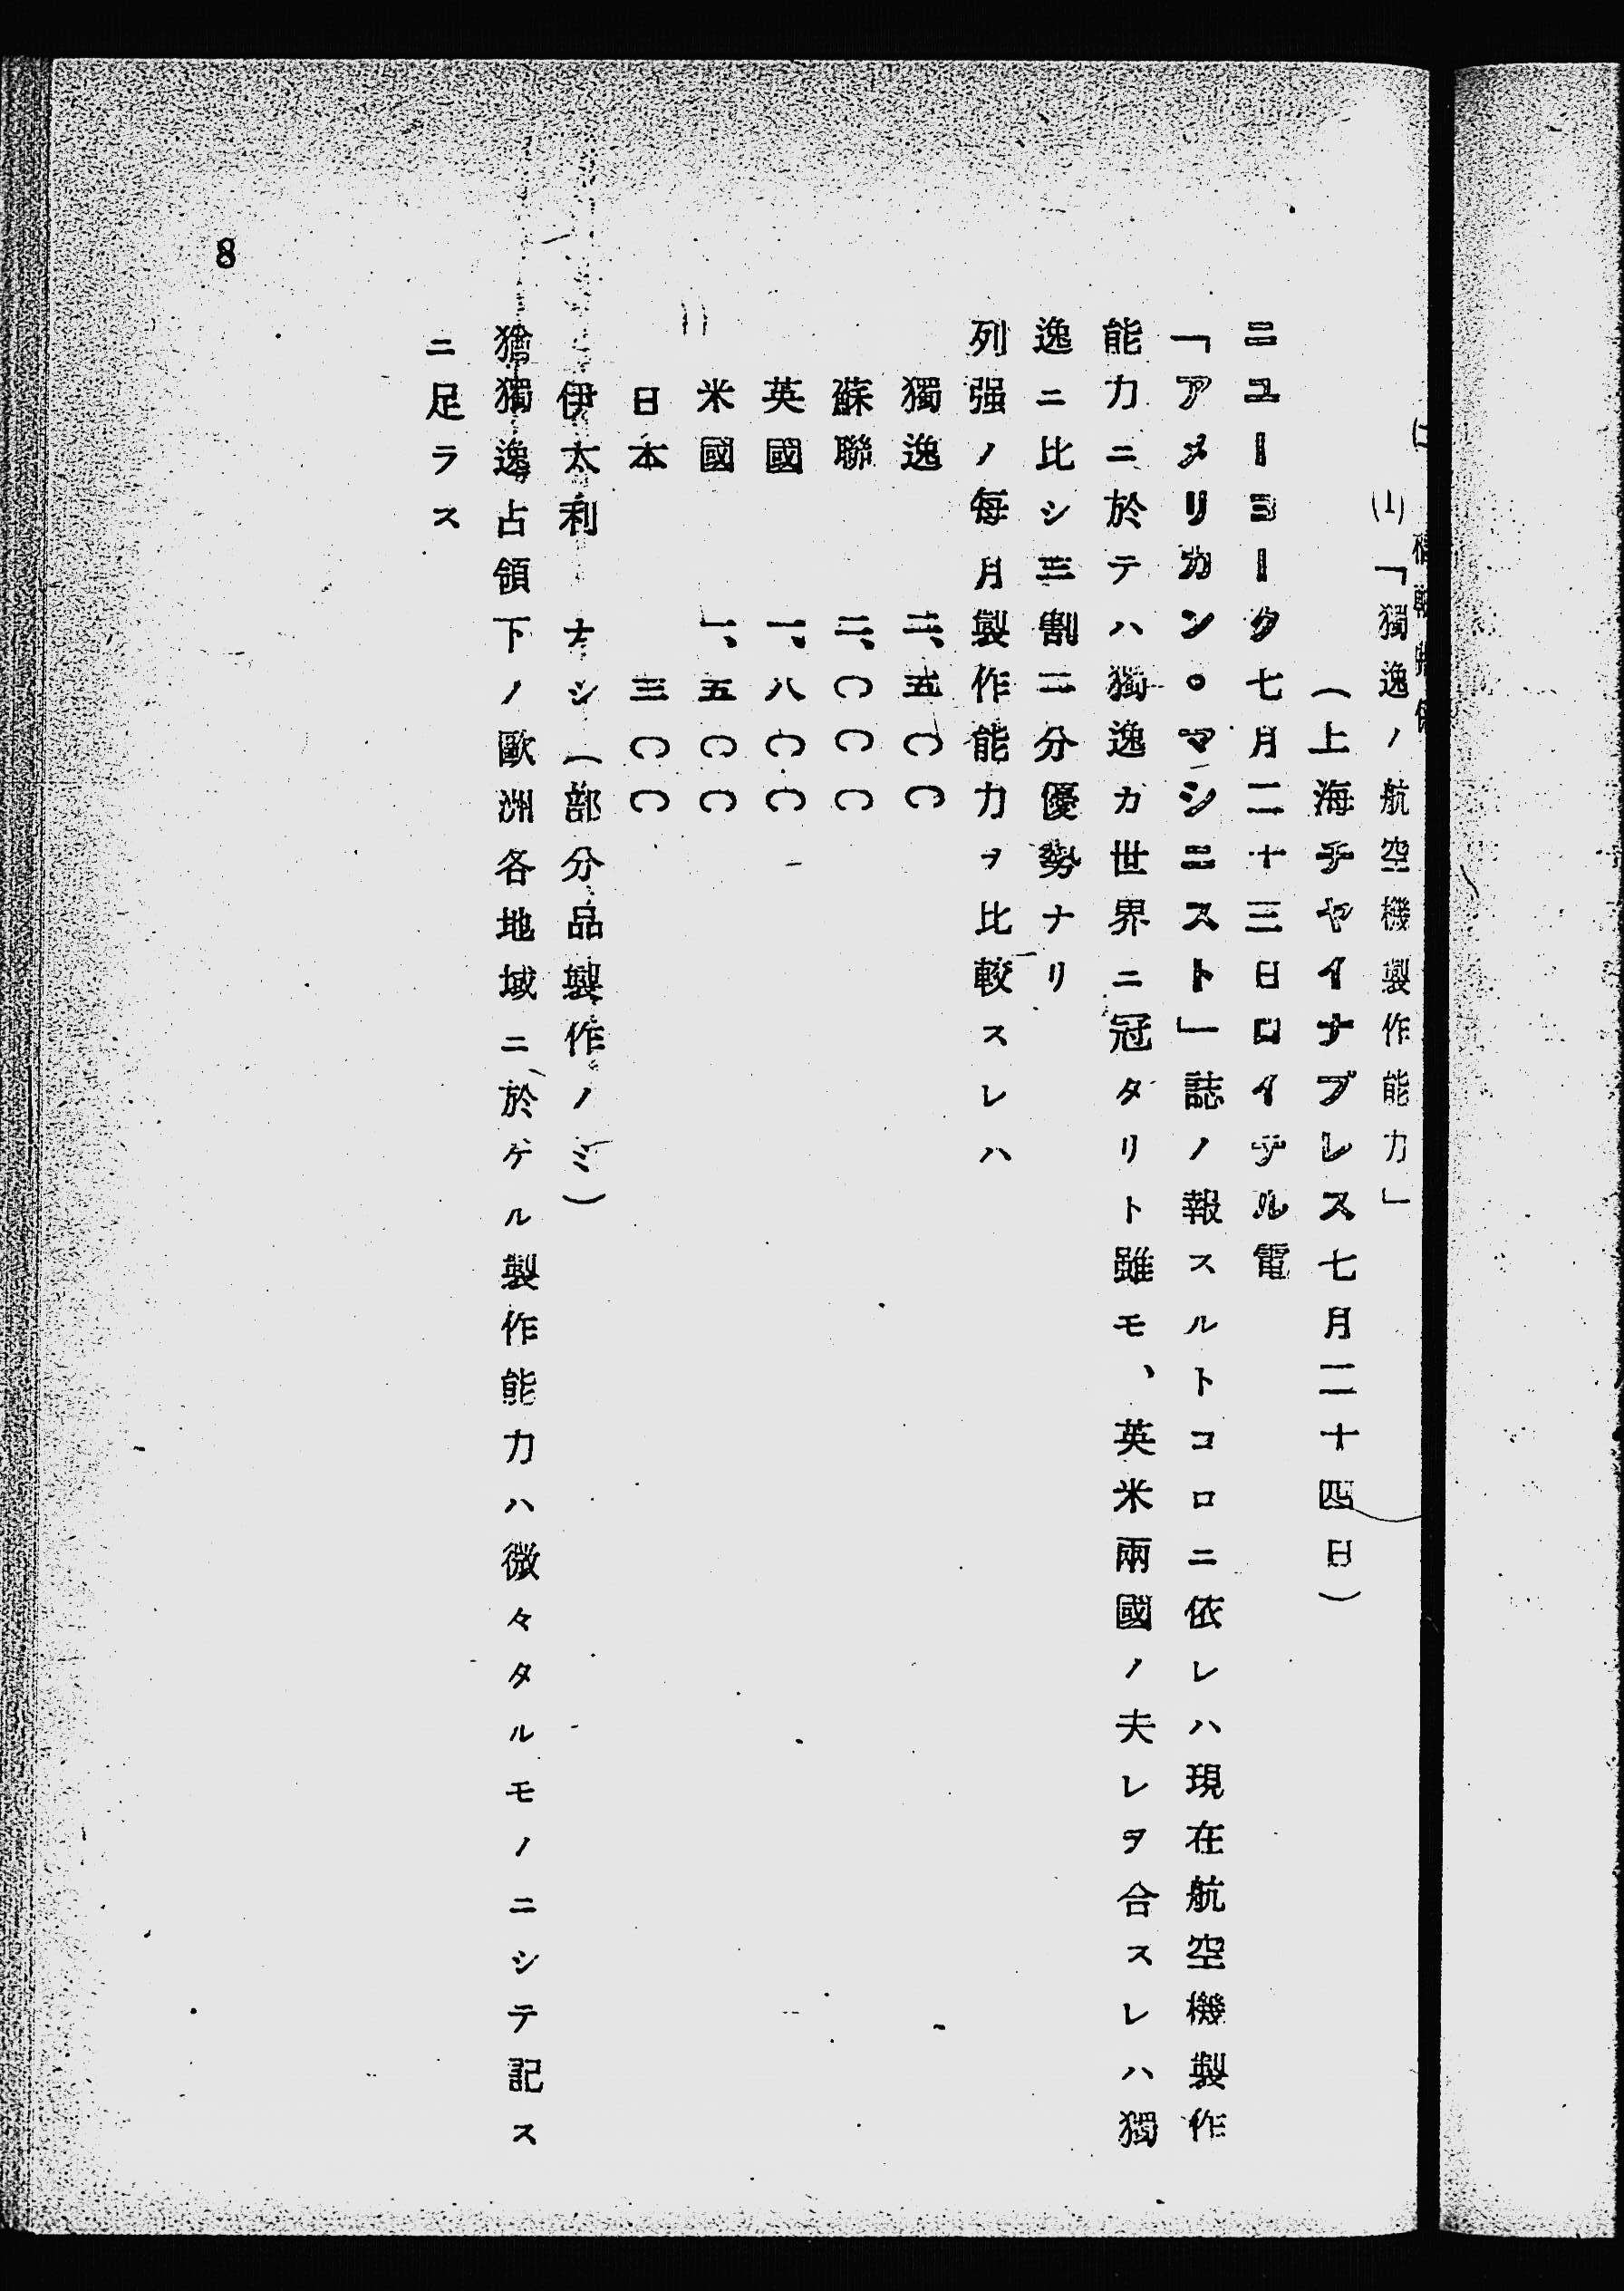 (1)「獨逸ノ航空機製作能力」
(上海チヤイナプレス七月二十四日)
ニユーヨーク七月二十三日ロイテル電
「アメリカン。マシニスト」誌ノ報スルトコロニ依レハ現在航空機製作
能力ニ於テハ獨逸カ世界ニ冠タリト雖モ、英米兩國ノ夫レヲ合スレハ獨
逸ニ比シ三割二分優勢ナリ
列强ノ每月製作能力ヲ比較スレハ
獨逸 二、五〇〇
蘇聯 二、〇〇〇
英國 一、八〇〇
米國 一、五〇〇
日本 三〇〇
伊太利 ナシ(部分品製作ノミ)
獨逸占領下ノ歐洲各地域ニ於ケル製作能力ハ微々タルモノニシテ記ス
ニ足ラス
8